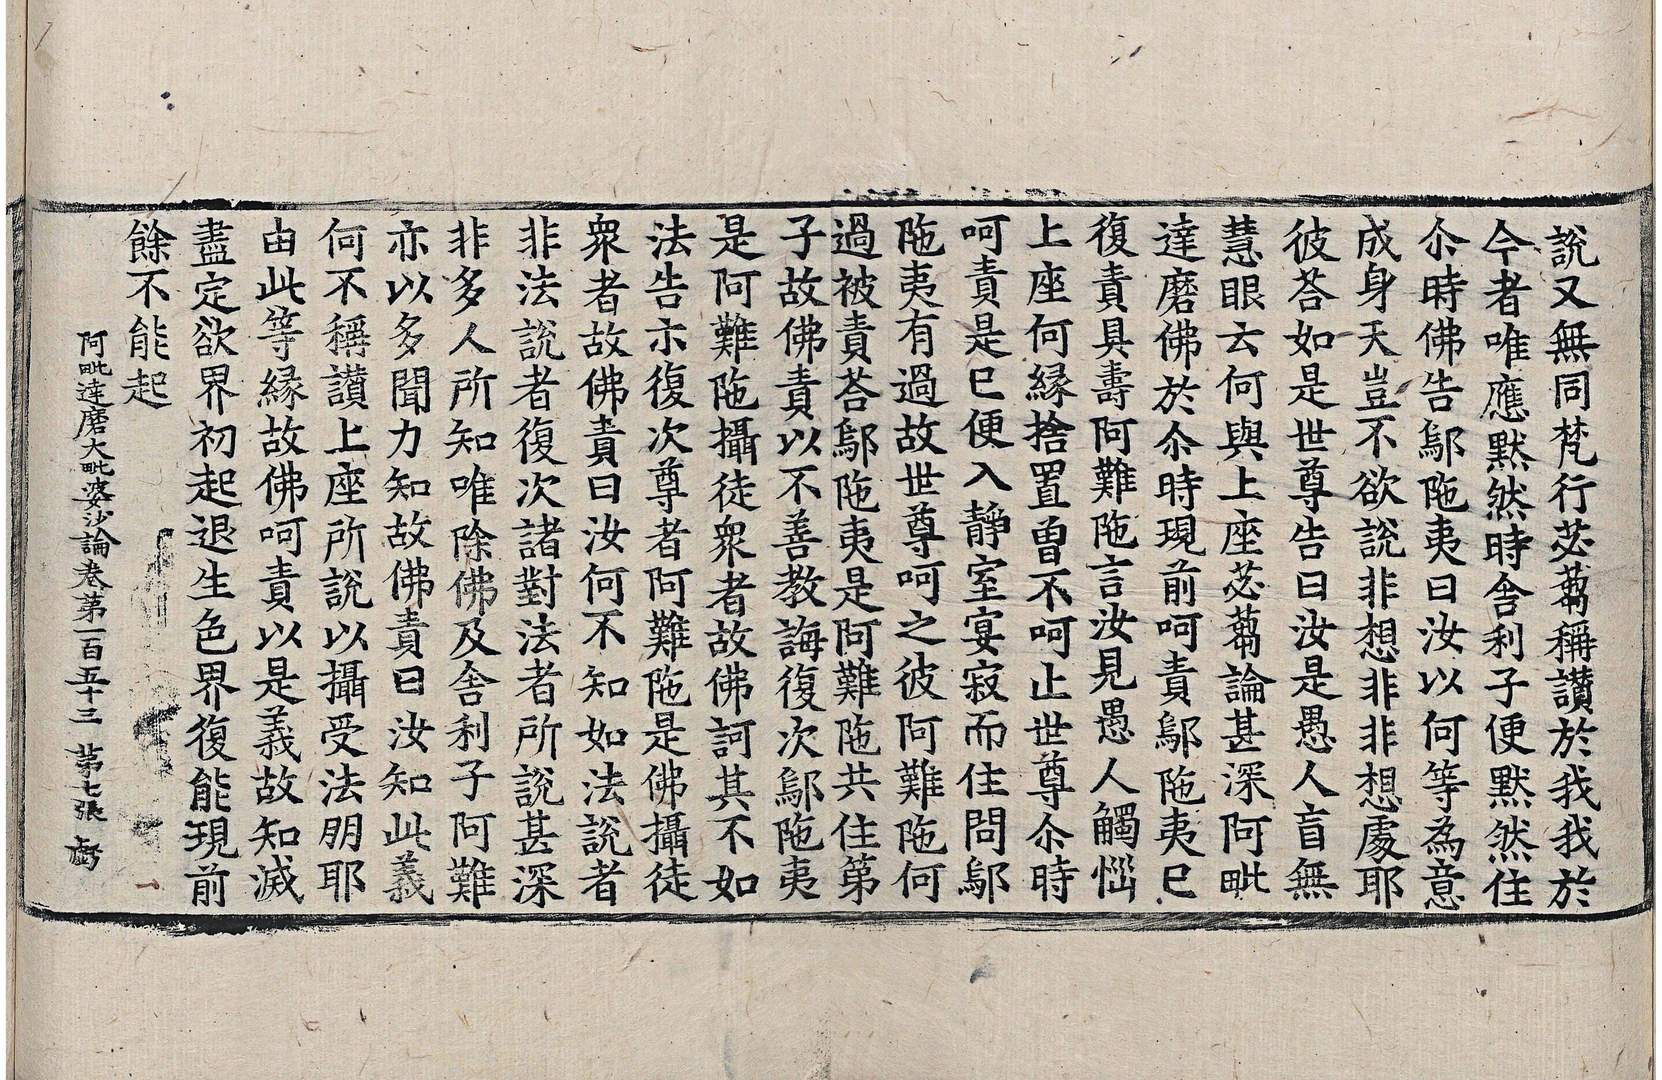 說又無同梵行苾蒭稱讃於我我於
今者唯應默然時舍利子便默然住
尒時佛告鄔陁夷曰汝以何等為意
成身天豈不欲說非想非非想處耶
彼荅如是世尊告曰汝是愚人盲無
慧眼云何與上座苾蒭論甚深阿毗
達磨佛於尒時現前呵責鄔陁夷已
復責具壽阿難陁言汝見愚人觸惱
上座何縁捨置曾不呵止世尊尒時
呵責是已便入靜室宴寂而住問鄔
陁夷有過故世尊呵之彼阿難陁何
過被責荅鄔陁夷是阿難陁共住弟
子故佛責以不善教誨復次鄔陁夷
是阿難陁攝徒衆者故佛訶其不如
法告示復次尊者阿難陁是佛攝徒
衆者故佛責曰汝何不知如法說者
非法說者復次諸對法者所說甚深
非多人所知唯除佛及舍利子阿難
亦以多聞力知故佛責曰汝知此義
何不稱讃上座所說以攝受法朋耶
由此等縁故佛呵責以是義故知滅
盡定欲界初起退生色界復能現前
餘不能起
阿毗達磨大毗婆沙論卷第一百五十三 第七張 虧